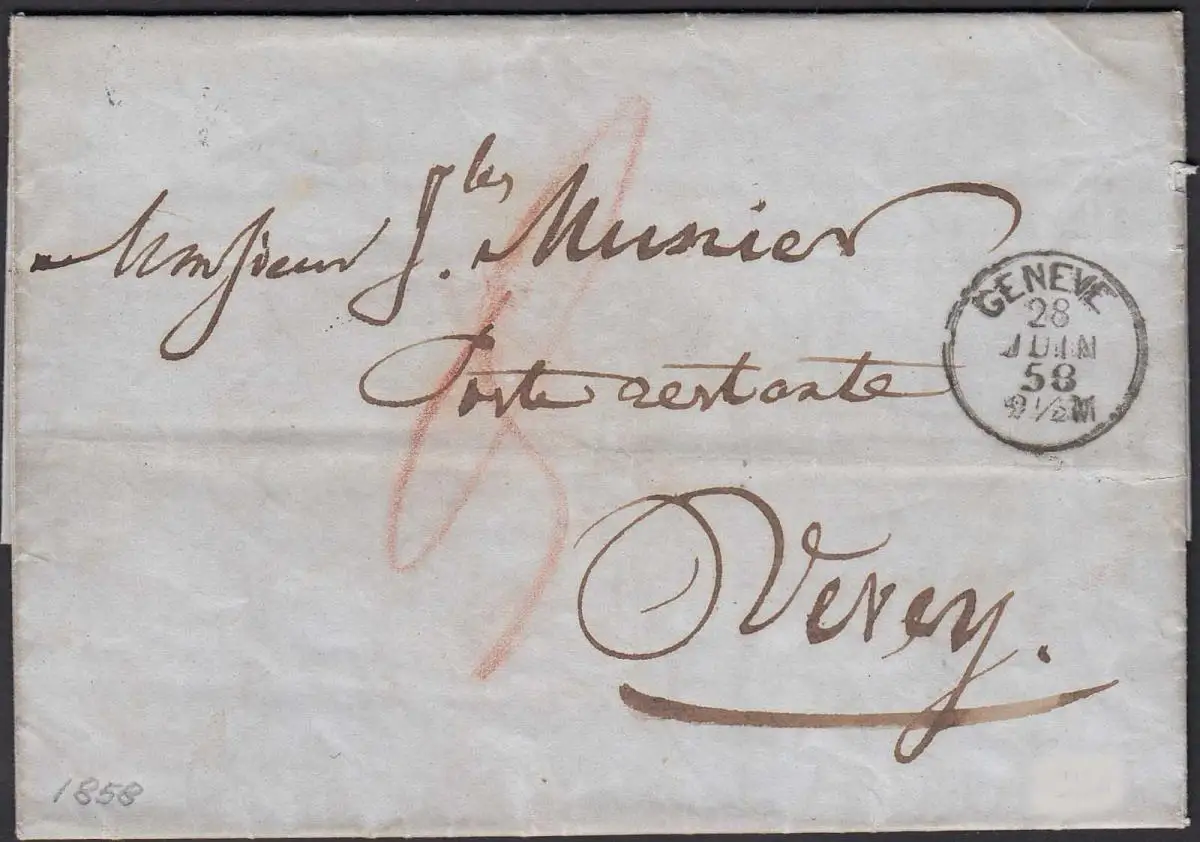 Monsieur J.les Munier
Poste restante
Vevey.
GENEVE
28
JUIN
58
9½M
1858